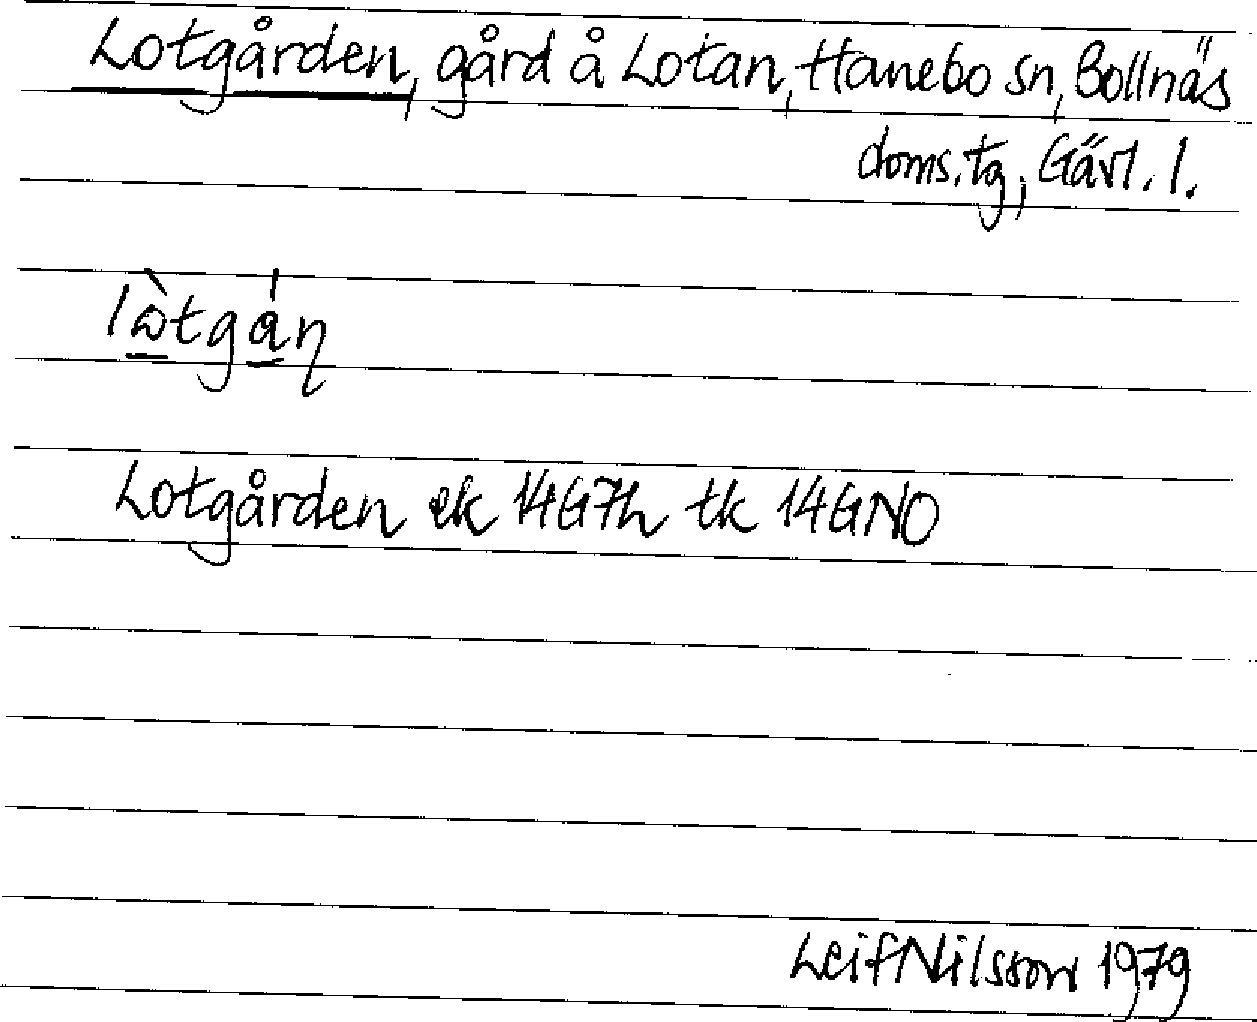 Lotgården, gård å Lotan, Hanebo sn, Bollnäs
doms.tg, Gävl. l.
lòtgán
Lotgården ek 14G7h tk 14GNO
Leif Nilsson 1979